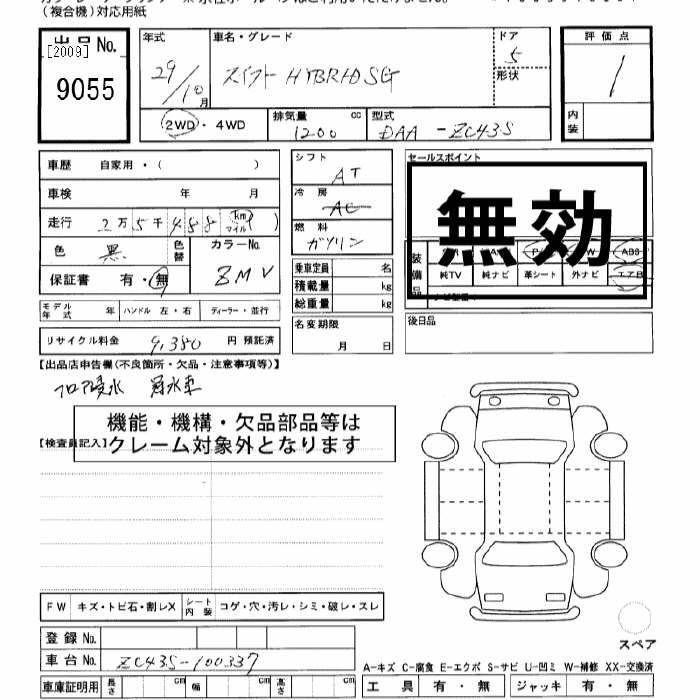 (複合機)対応用紙
出品 No.
[2009]
9055
年式
29/10月
車名・グレード
スイフト HYBRID SG
ドア
5
形状
評価点
1
内装
2WD・4WD
排気量 cc
1200
型式
DAA - ZC43S
車歴 自家用・( )
車検 年 月
走行 2万5千488 km マイル( )
色 黒 色替
カラーNo.
ZMV
保証書 有・無
モデル年式 年 ハンドル 左・右 ディーラー・並行
リサイクル料金 9,380 円 預託済
シフト
AT
冷房
AC
燃料
ガソリン
乗車定員 名
積載量 kg
総重量 kg
名変期限
月 日
セールスポイント
無効
装備品
純TV 純ナビ 革シート 外ナビ エアB
後日品
【出品店申告欄(不良箇所・欠品・注意事項等)】
フロア浸水 冠水車
機能・機構・欠品部品等は
クレーム対象外となります
【検査員記入】
FW キズ・トビ石・割レX シート内装 コゲ・穴・汚レ・シミ・破レ・スレ
登録 No.
車台 No. ZC43S-100337
車庫証明用 長さ cm 幅 cm 高さ cm
スペア
A-キズ C-腐食 E-エクボ S-サビ U-凹ミ W-補修 XX-交換済
工具 有・無 ジャッキ 有・無